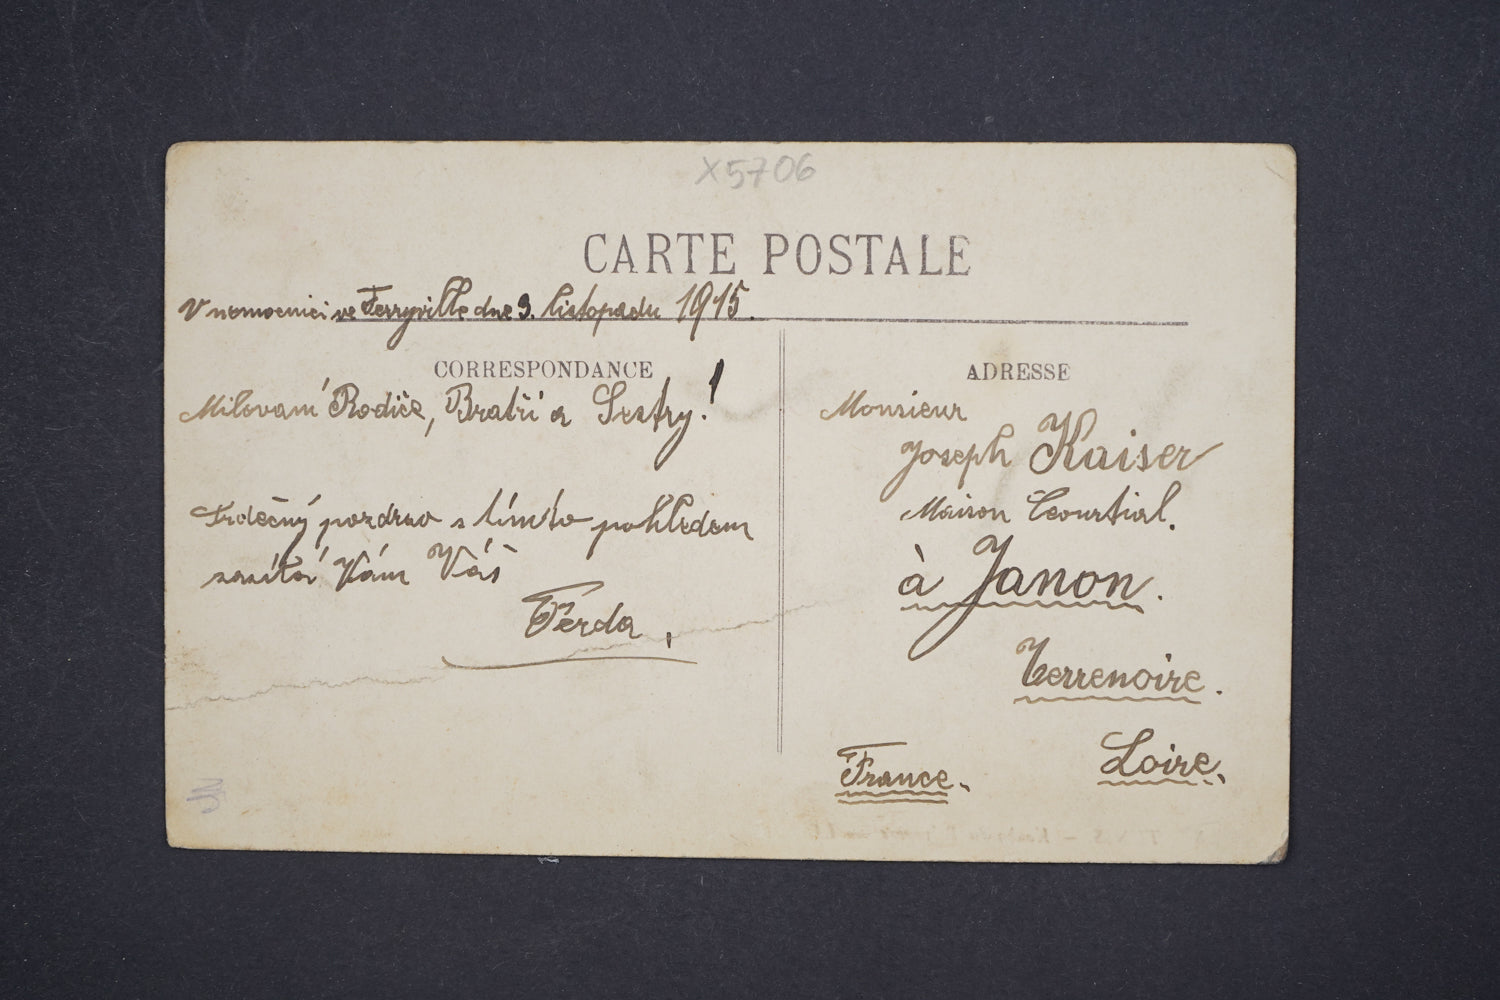 X5706
CARTE POSTALE
V nemocnici ve Ferryville dne 9. listopadu 1915.
CORRESPONDANCE
Milovaní Rodiče, Bratři a Sestry!
Srdečný pozdrav s tímto pohledem
zasílá Vám Váš
Ferda.
ADRESSE
Monsieur
Joseph Kaiser
Maison Courtial.
à Janon.
Terrenoire.
Loire.
France.